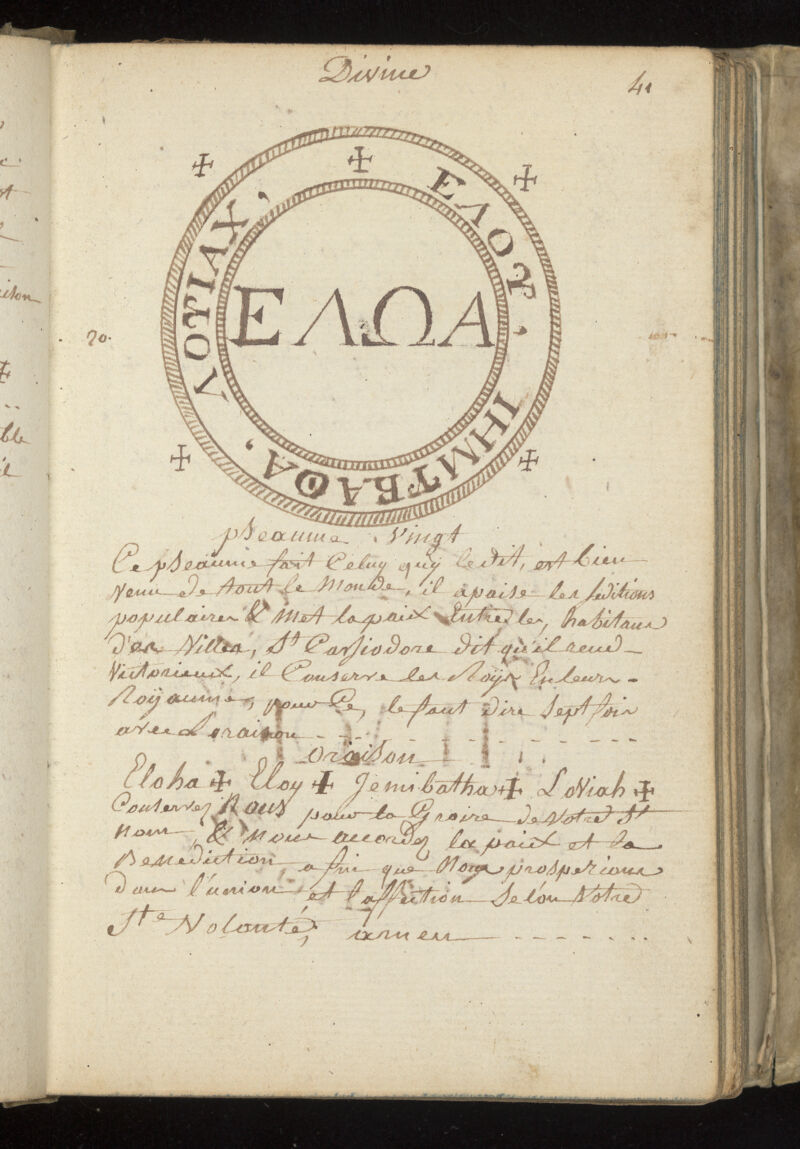 Divine
41
ΕΛΟΥ, ΙΗΜΤΒΑΘΑ, ΛΟΥΙΑΧ,
ΕΛΩΑ
20.
pseaume vingt
Ce pseaume fait Celuy quÿ le dit, est bien
venu de tout le Monde, il apaise les seditions
populaires & met la paix Entre les, habitans
d'es Villes, St Cassiodore dit qu'il rend
Victorieux, il Conserve les Roÿs En leurs
Roÿaumes, pour Ce, le faut dire Sept fois
avec Loraison
oraison
Eloha + Eloy + Jemibatha + Loviah +
Conservez Nous pour la Groire de Votre St
nom, & nous accordez la paix et la
Benediction, afin que Nous prosperions
dans l'union et l'affection Selon Votre
Ste Volonté, amen